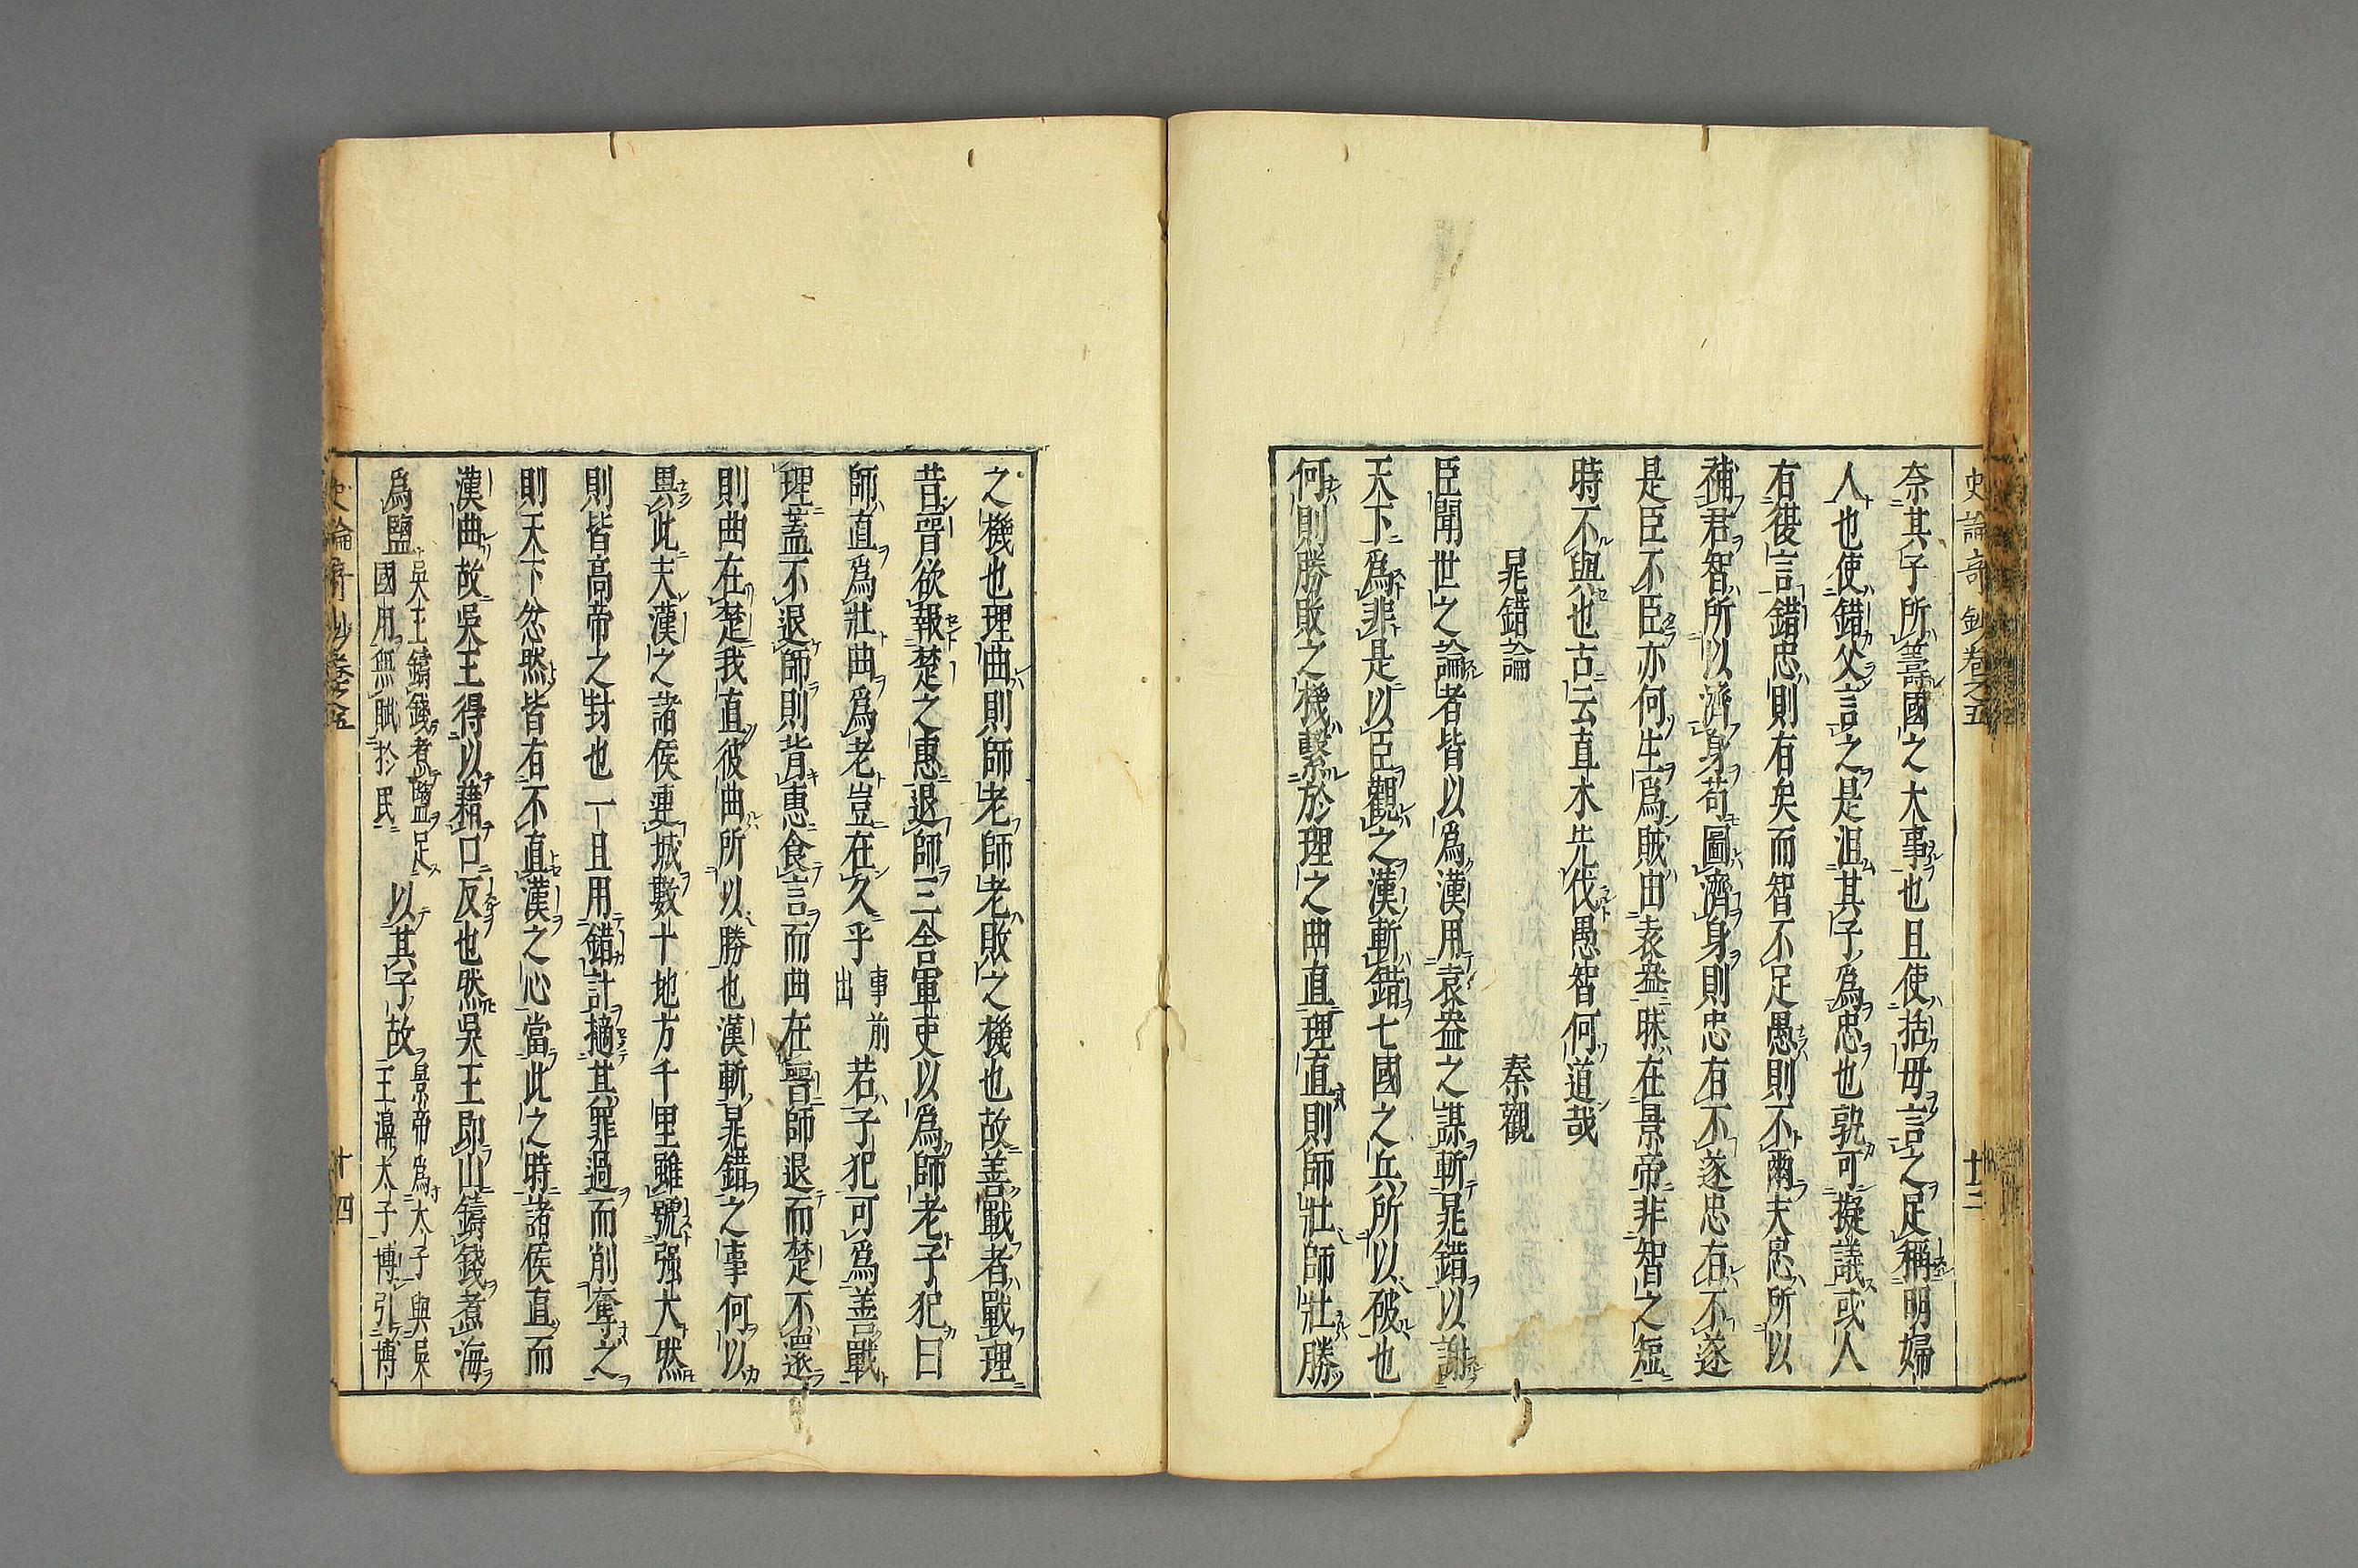 史論奇鈔卷之五
十三
奈其子所籌國之大事也且使括母言之足稱明婦
人也使錯父言之是沮其子爲忠也孰可擬議或人
有從言錯忠則有矣而智不足愚則不爾夫忠所以
補君智所以濟身苟圖濟身則忠有不遂忠有不遂
是臣不臣亦何生爲賊由袁盎昧在景帝非智之短
時不與也古云直木先伐愚智何道哉
晁錯論 秦觀
臣聞世之論者皆以爲漢用袁盎之謀斬晁錯以謝
天下爲非是以臣觀之漢斬錯七國之兵所以破也
何則勝敗之機繫於理之曲直理直則師壯師壯勝
之機也理曲則師老師老敗之機也故善戰者戰理
昔晉欲報楚之惠退師三舍軍吏以爲師老子犯曰
師直爲壯曲爲老豈在久乎事前出若子犯可爲善戰
理蓋不退師則背惠食言而曲在晉師退而楚不還
則曲在楚我直彼曲所以勝也漢斬晁錯之事何以
異此夫漢之諸侯連城數十地方千里雖號强大然
則皆高帝之封也一旦用錯計擿其罪過而削奪之
則天下忿然皆有不直漢之心當此之時諸侯直而
漢曲故吳王得以藉口反也然吳王即山鑄錢煮海
爲鹽吳王鑄錢煮鹽足國用無賦於民以其子故景帝爲太子與吳王濞太子博引博
史論奇鈔卷之五
十四